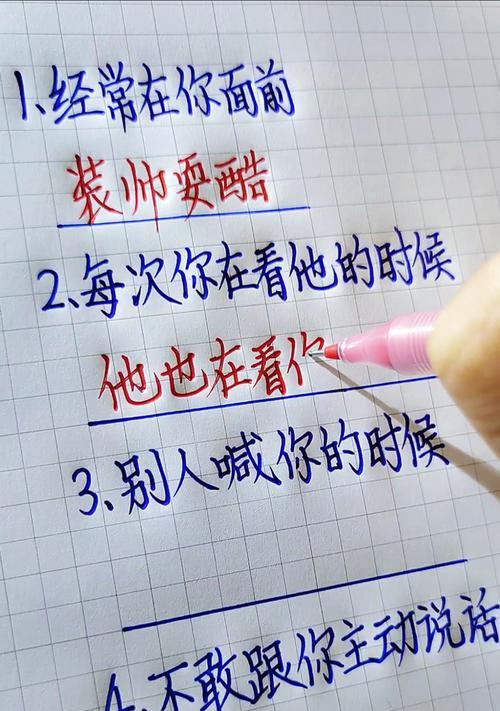 1、经常在你面前
装帅耍酷
2、每次你在看他的时候
他也在看你
3、别人喊你的时候
4、不敢跟你主动说话